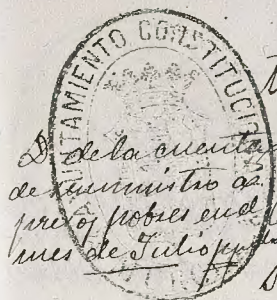 AYUNTAMIENTO CONSTITUCIO
D. de la cuenta
de suministro a
presos pobres en el
mes de Julio